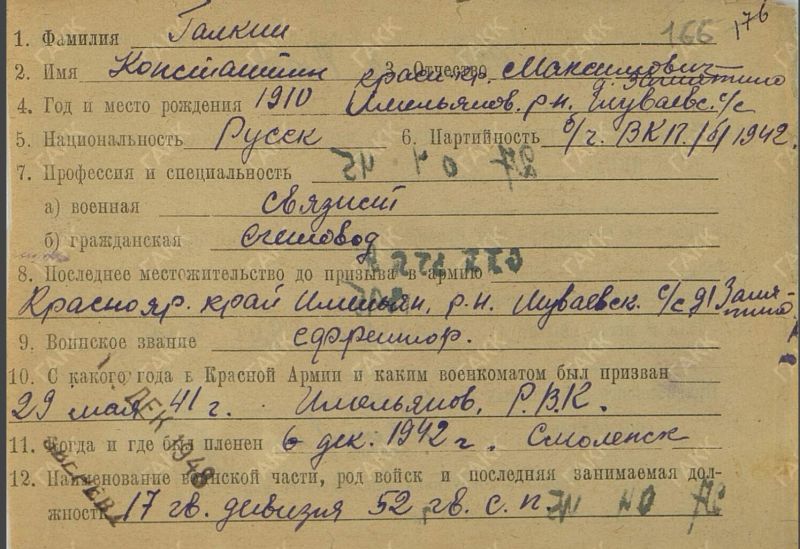 166 176
1. Фамилия Галкин
2. Имя Константин 3. Отчество Максимович
красн. кр. д. Замятино
4. Год и место рождения 1910 Имельянов. р-н. Шуваевс. с/с
5. Национальность Русск 6. Партийность б/ч. ВКП/б/ 1942.
7. Профессия и специальность
а) военная связист
б) гражданская счетовод
8. Последнее местожительство до призыва в армию
Краснояр. край Имельян. р-н. Шуваевск. с/с д. Замятино.
9. Воинское звание ефрейтор.
10. С какого года в Красной Армии и каким военкоматом был призван
29 мая 41 г. Имельянов. Р.В.К.
11. Когда и где был пленен 6 дек. 1942 г. Смоленск
12. Наименование воинской части, род войск и последняя занимаемая дол-
жность 17 гв. дивизия 52 гв. с. п.
ДЕК 1948